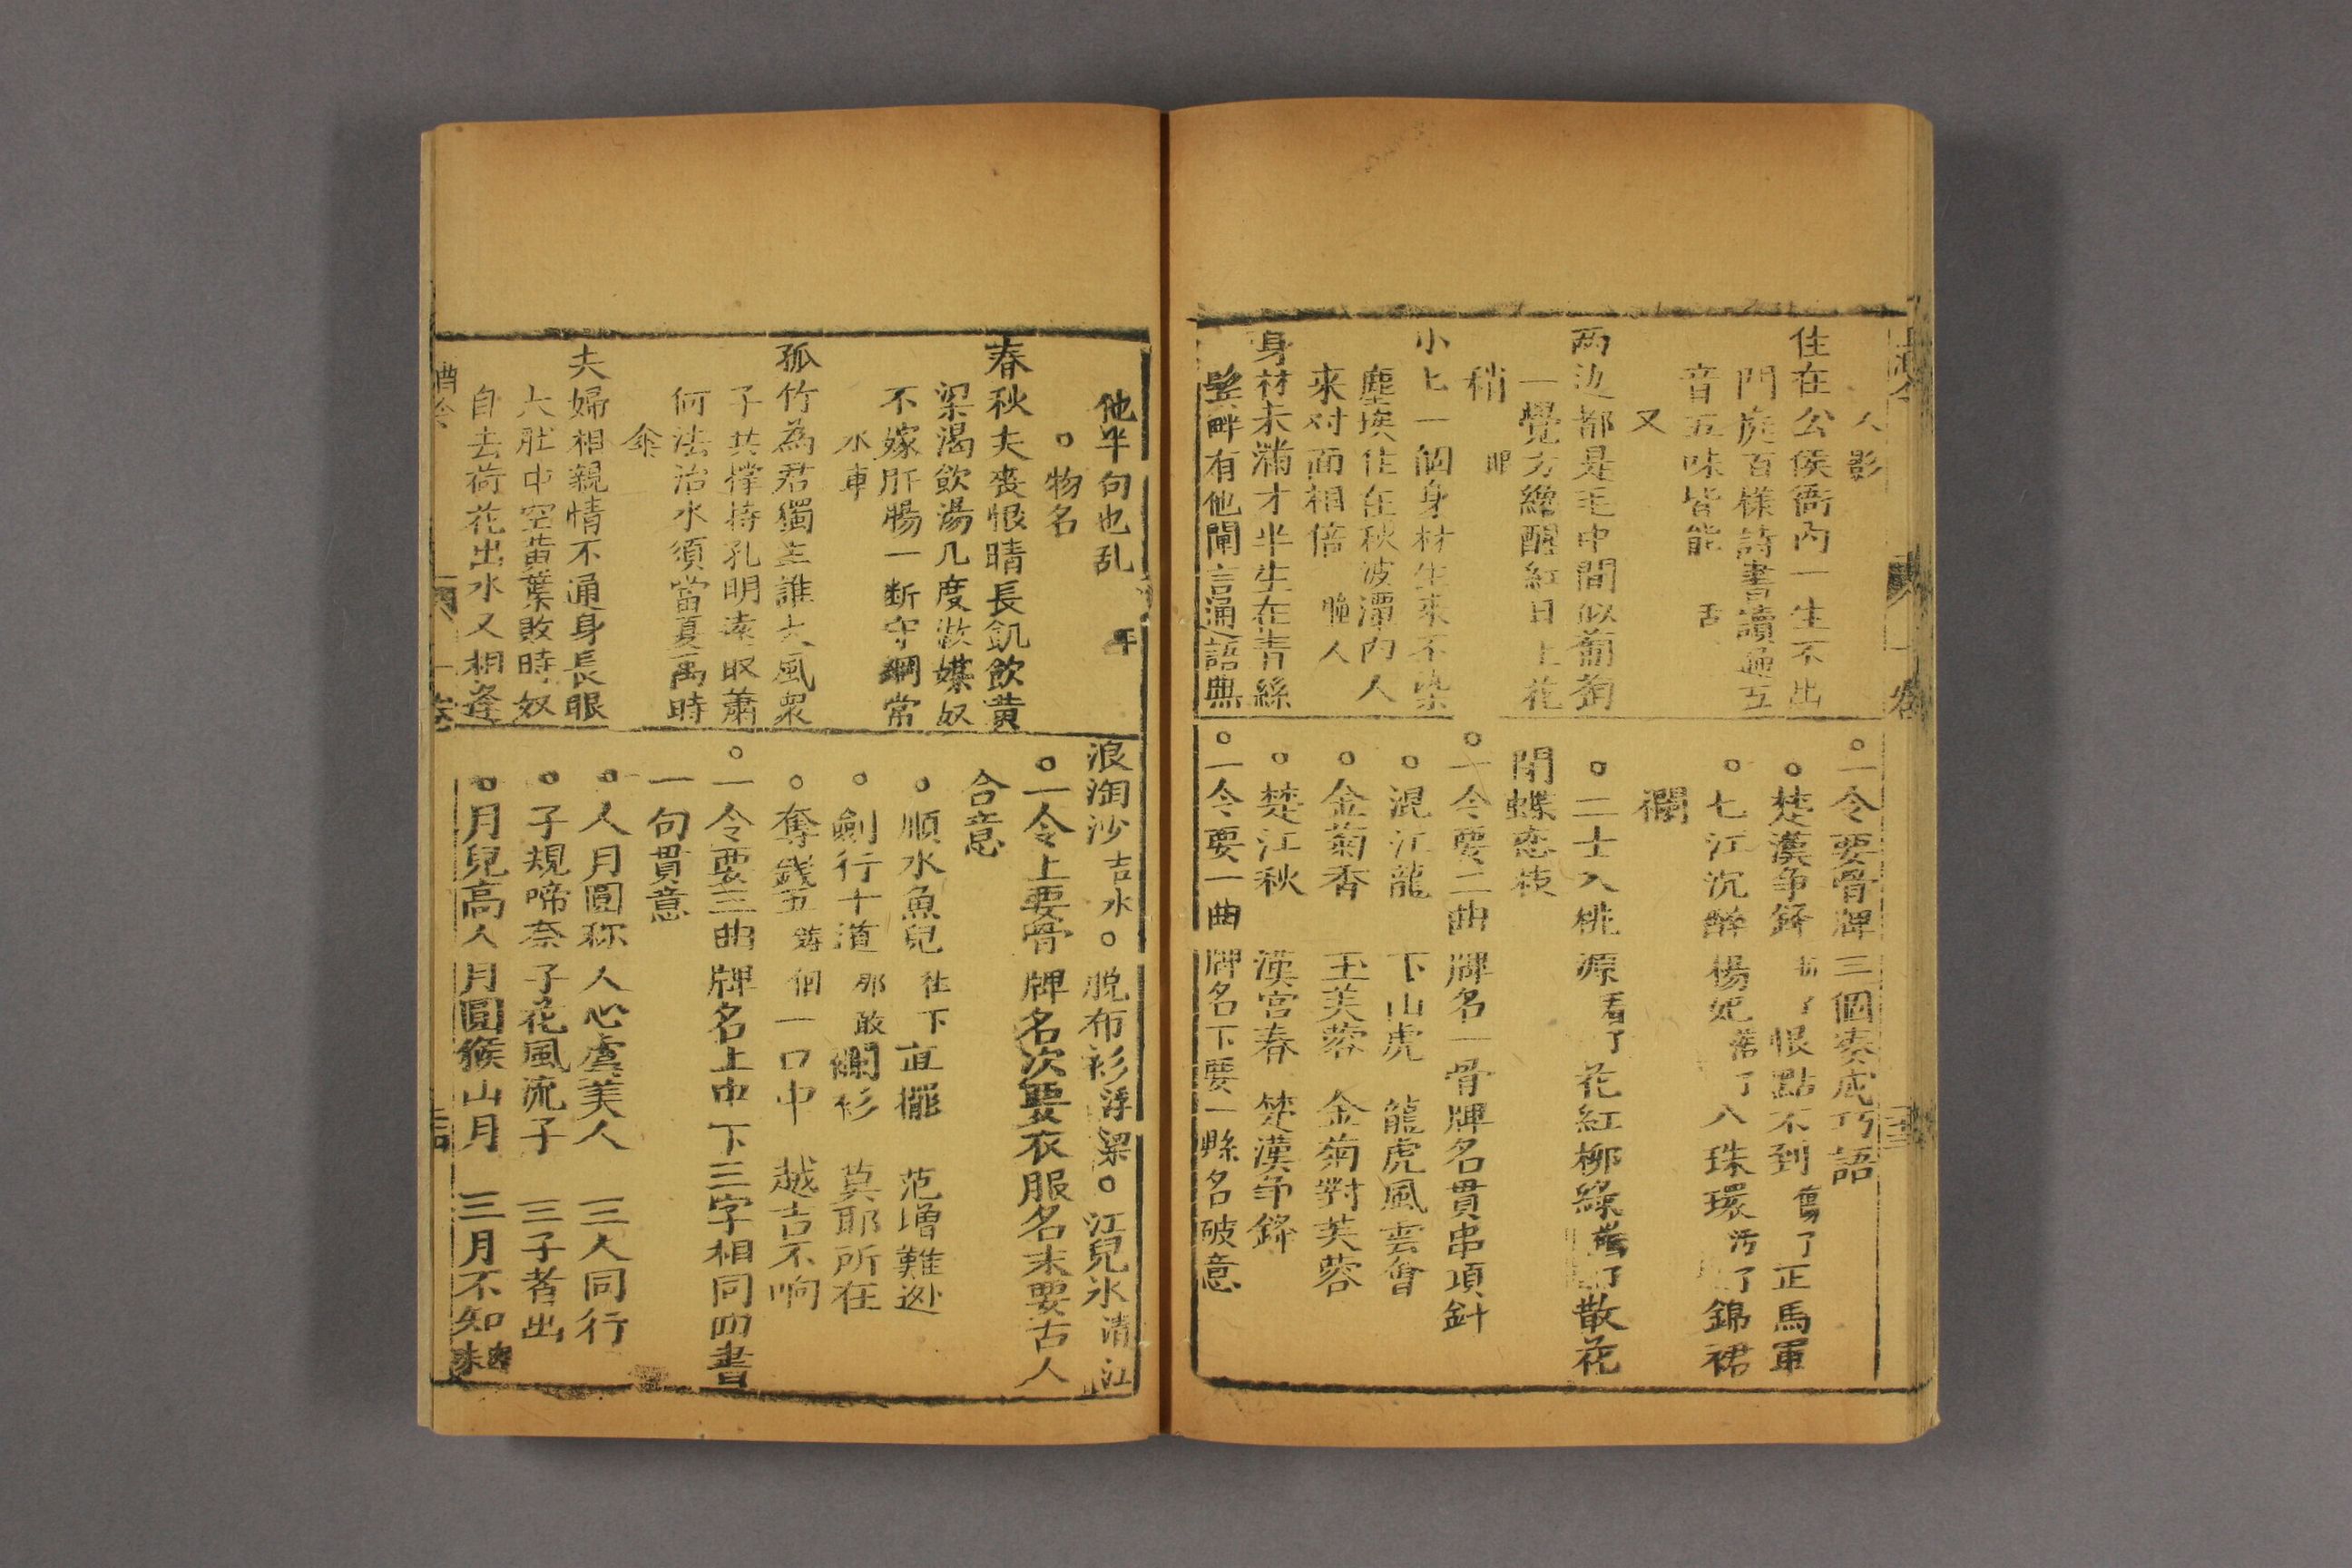 人影
住在公侯衙内一生不出
門庭百樣詩書讀通五
音五味皆能 舌
又
两边都是毛中間似葡萄
一覺方纔醒紅日上花
稍 眼
小七一個身材生來不染
塵埃住在秋波潭内人
來对面相倍 瞳人
身材未滿才半生在青絲
鬂畔有他閙言通語無
。一令要骨牌三個湊成巧語
。楚漢争鋒 了恨點不到 傷了正馬軍
。七江沉醉楊妃 落了八珠環 污了錦裙
襴
。二士入桃源 看了花紅柳綠 了散花
閒蝶恋枝
。一令要二曲牌名一骨牌名貫串項針
。混江龍 下山虎 龍虎風雲會
。金菊香 玉芙蓉 金菊對芙蓉
。楚江秋 漢宮春 楚漢争鋒
。一令要一曲牌名下要一縣名破意
他半句也乱 耳
。物名
春秋夫喪恨晴長飢飲黄
梁渴飲湯几度做媒奴
不嫁肝腸一断守綱常
水車
孤竹為君獨立誰大風衆
子共撑持孔明遠取蕭
何法治水須當夏禹時
傘
夫婦相親情不通身長眼
大肚中空黄葉敗時奴
自去荷花出水又相逢
浪淘沙 吉水。脱布衫 浮梁。江兒水 清江
。一令上要骨牌名次要衣服名末要古人
合意
。順水魚兒 往下直擺 范增難逊
。劍行十道 那敢襴衫 莫耶所在
。奪錢五 個一口中 越吉不响
。一令要三曲牌名上中下三字相同四書
一句貫意
。人月圓称人心虞美人 三人同行
。子規啼奈子花風流子 三子者出
。月兒高人月圓猴山月 三月不知